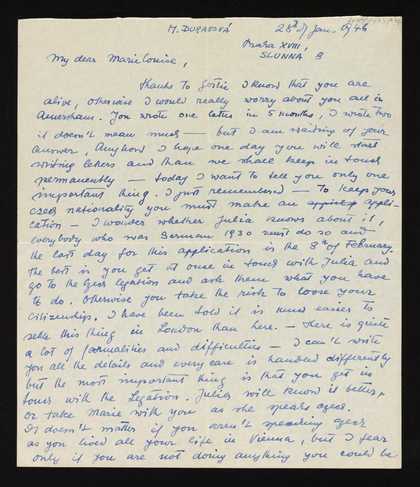 M. DURASOVÁ
28th of Jan. 1946
Praha XVIII,
SLUNNA 8
My dear Marie Louise,
thanks to I know that you are
alive, otherwise I would really worry about you all in
Amersham. You wrote one letter in 5 months, I wrote two
it doesn't mean much — but I am waiting of your
answer. Anyhow I hope one day you will start
writing letters and than we shall keep in touch
permanently — today I want to tell you only one
important thing. I just remembered — to keep your
czech nationality you must make an appli
cation — I wonder whether Julia knows about it,
everybody who was German 1930 must do so and
the last day for this application is the 8th of February.
The best is you get at once in touch with Julia and
go to the Czech legation and ask them what you have
to do. Otherwise you take the risk to loose your
citizenship. I have been told it is much easier to
settle this thing in London than here. — There is quite
a lot of formalities and difficulties — I can't write
you all the details and every case is handled differently
but the most important thing is that you get in
touch with the Legation. Julia will know it better,
or take Marie with you as she speaks czech.
It doesn't matter if you aren't speaking czech
as you lived all your life in Vienna, but I fear
only if you are not doing anything you could be